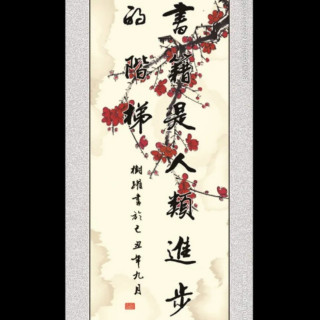 書籍是人類進步
的階梯
樹權書於己丑年九月